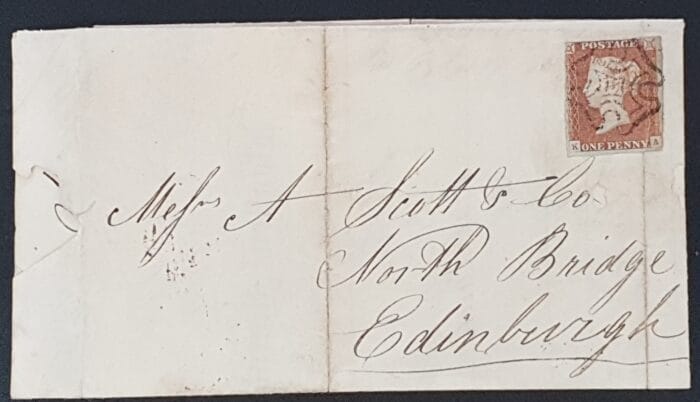 POSTAGE
K ONE PENNY A
Messrs A Scott & Co
North Bridge
Edinburgh